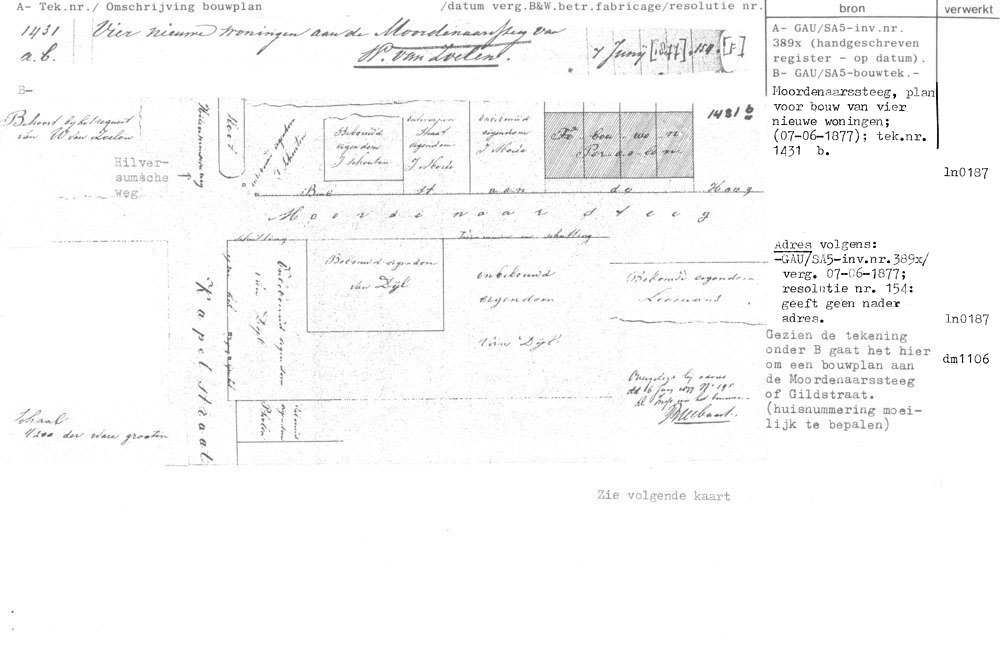 A- Tek.nr./ Omschrijving bouwplan /datum verg.B&W.betr.fabricage/resolutie nr.
bron
verwerkt
1431 Vier nieuwe woningen aan de Moordenaarssteeg van
a.b. W. van Zoelen. 7 Juny [1877]. 154. [F]
A- GAU/SA5-inv.nr.
389x (handgeschreven
register - op datum).
B- GAU/SA5-bouwtek.-
Moordenaarssteeg, plan
voor bouw van vier
nieuwe woningen;
(07-06-1877); tek.nr.
1431 b.
ln0187
B-
Behoort bij het request
van W van Zoelen
Hilver-
sumsche
weg
Sloot
onbebouwd eigendom
J Schouten
Bebouwd
eigendom
J Schouten
Straat
eigendom
J Morée
onbebouwd
eigendom
J Morée
Te bou- wo- n
Per-ce-len
1431 b
Be st aan de Haag
Moordinaar steeg
Adres volgens:
-GAU/SA5-inv.nr.389x/
verg. 07-06-1877;
resolutie nr. 154:
geeft geen nader
adres.
ln0187
schutting
schutting
Bebouwd eigendom
van Dijl
onbebouwd
eigendom
van Dijl
Bebouwd eigendom
Onbebouwd eigendom
van Dijl
Kapelstraat
onbebouwd
eigendom
Gezien de tekening
onder B gaat het hier
om een bouwplan aan
de Moordenaarssteeg
of Gildstraat.
(huisnummering moei-
lijk te bepalen)
dm1106
Schaal
1/200 der ware grootte
Zie volgende kaart